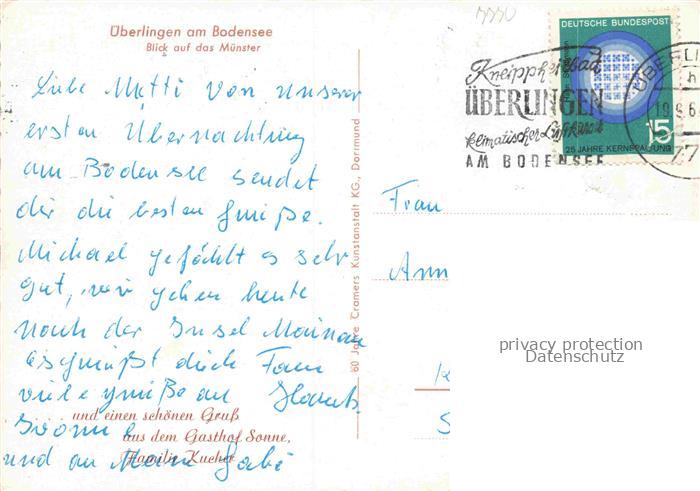 Überlingen am Bodensee
Blick auf das Münster
Liebe Mutti Von unserer
ersten Übernachtung
am Bodensee sendet
dir die besten Grüße.
Michael gefählt es sehr
gut, wir gehen heute
nach der Insel Mainau
es grüßt dich Fam
viele grüße an
und an Gabi
und einen schönen Gruß
aus dem Gasthof Sonne,
Familie Kucher
60 Jahre Cramers Kunstanstalt KG., Dortmund
Kneippheilbad
ÜBERLINGEN
klimatischer Luftkurort
AM BODENSEE
DEUTSCHE BUNDESPOST
15
25 JAHRE KERNSPALTUNG
ÜBERLI
19.9.6
77
Frau
Ann
privacy protection
Datenschutz